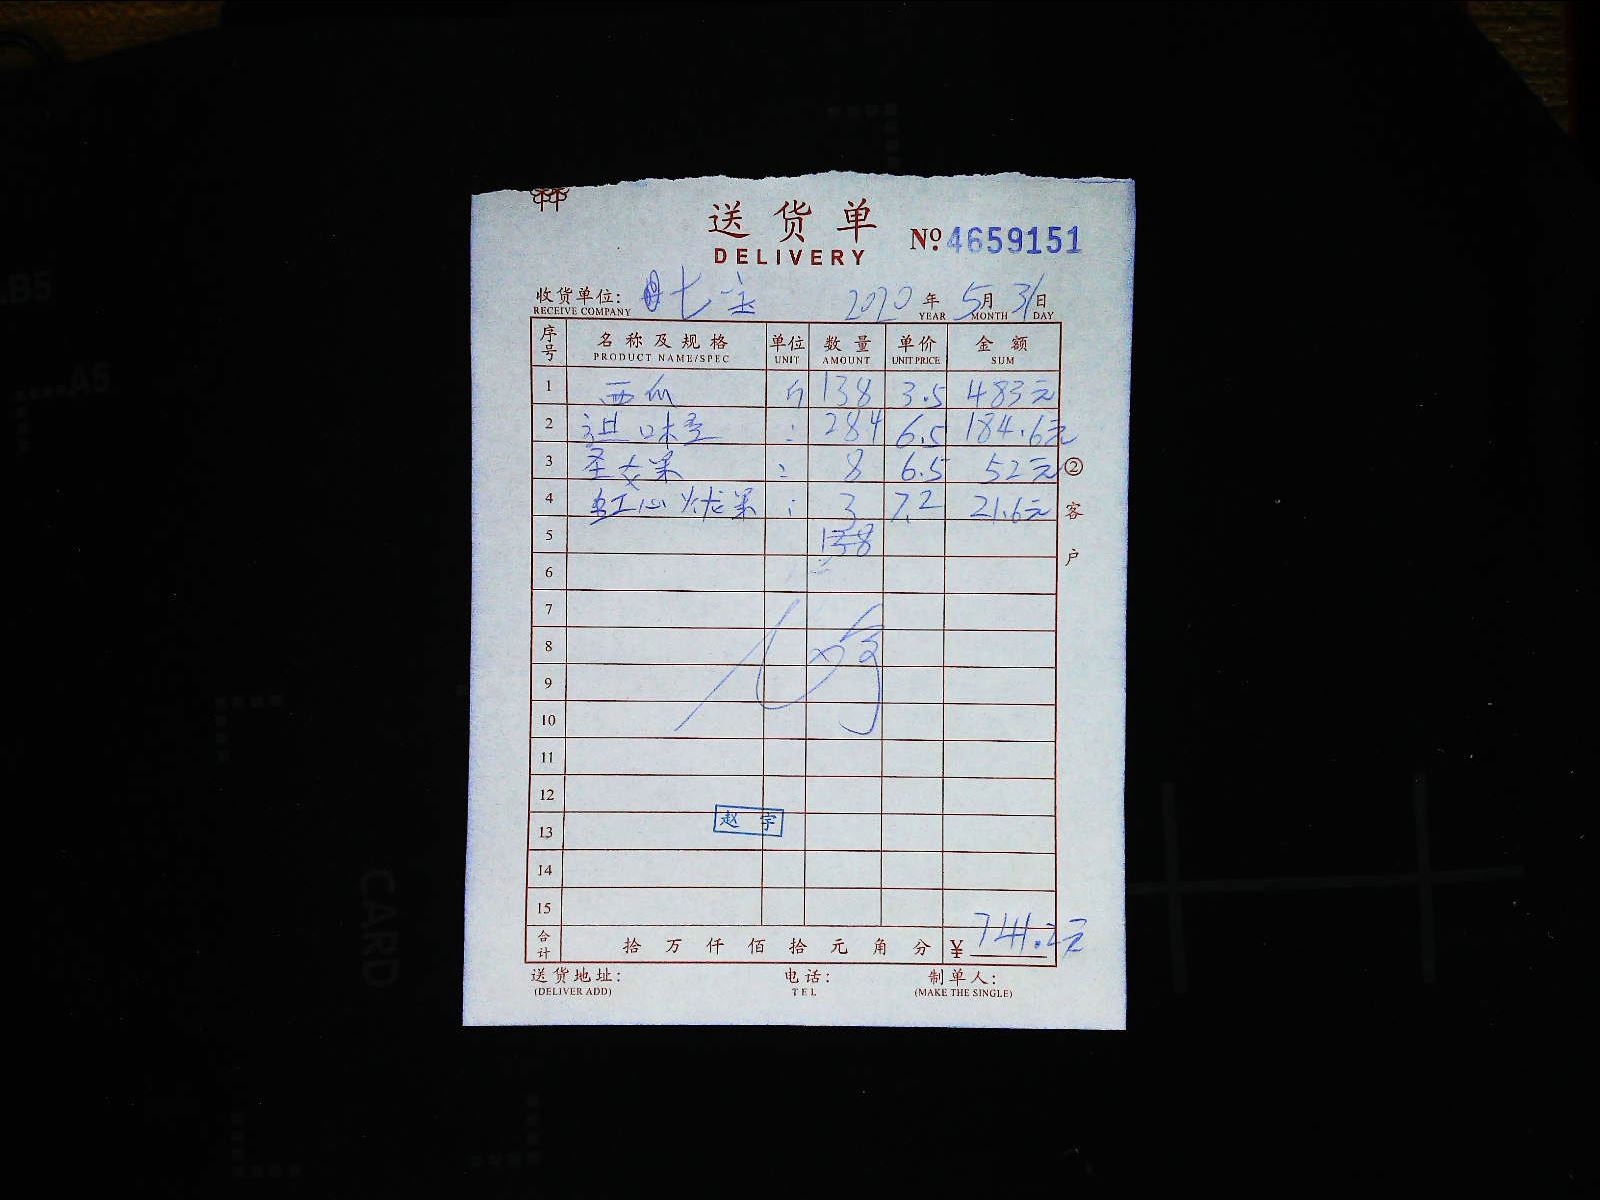 送货单
DELIVERY
№ 4659151
收货单位: 七 2020 年 5 月 31 日
RECEIVE COMPANY YEAR MONTH DAY
序号 名称及规格 单位 数量 单价 金额
PRODUCT NAME/SPEC UNIT AMOUNT UNIT PRICE SUM
1 西瓜 斤 138 3.5 483元
2 进口味王 : 284 6.5 184.6元
3 圣女果 : 8 6.5 52元
4 红心火龙果 : 3 7.2 21.6元
5 138
6
7
8
9
10
11
12
13 赵宇
14
15
合计 拾万仟佰拾元角分 ¥ 741.2元
② 客户
送货地址: 电话: 制单人:
(DELIVER ADD) TEL (MAKE THE SINGLE)
B5
A5
CARD